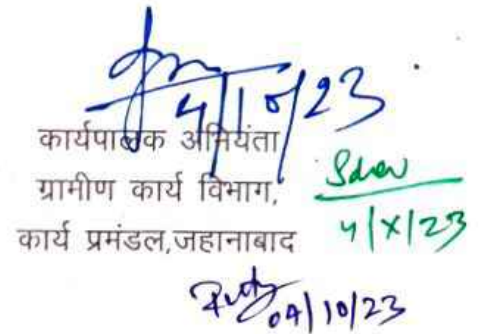 4/10/23
कार्यपालक अभियंता
ग्रामीण कार्य विभाग,
कार्य प्रमंडल,जहानाबाद
4/X/23
04/10/23